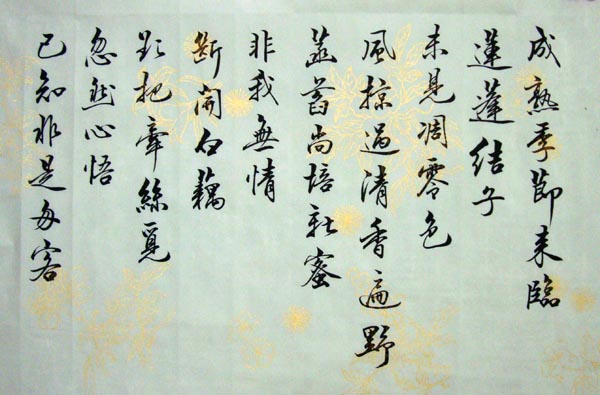 成熟季節来臨
蓮蓬結子
未見凋零色
風掠過清香遍野
蕊舊尚培新蜜
非我無情
斷開白藕
把牽絲覓
忽然心悟
已知非是客